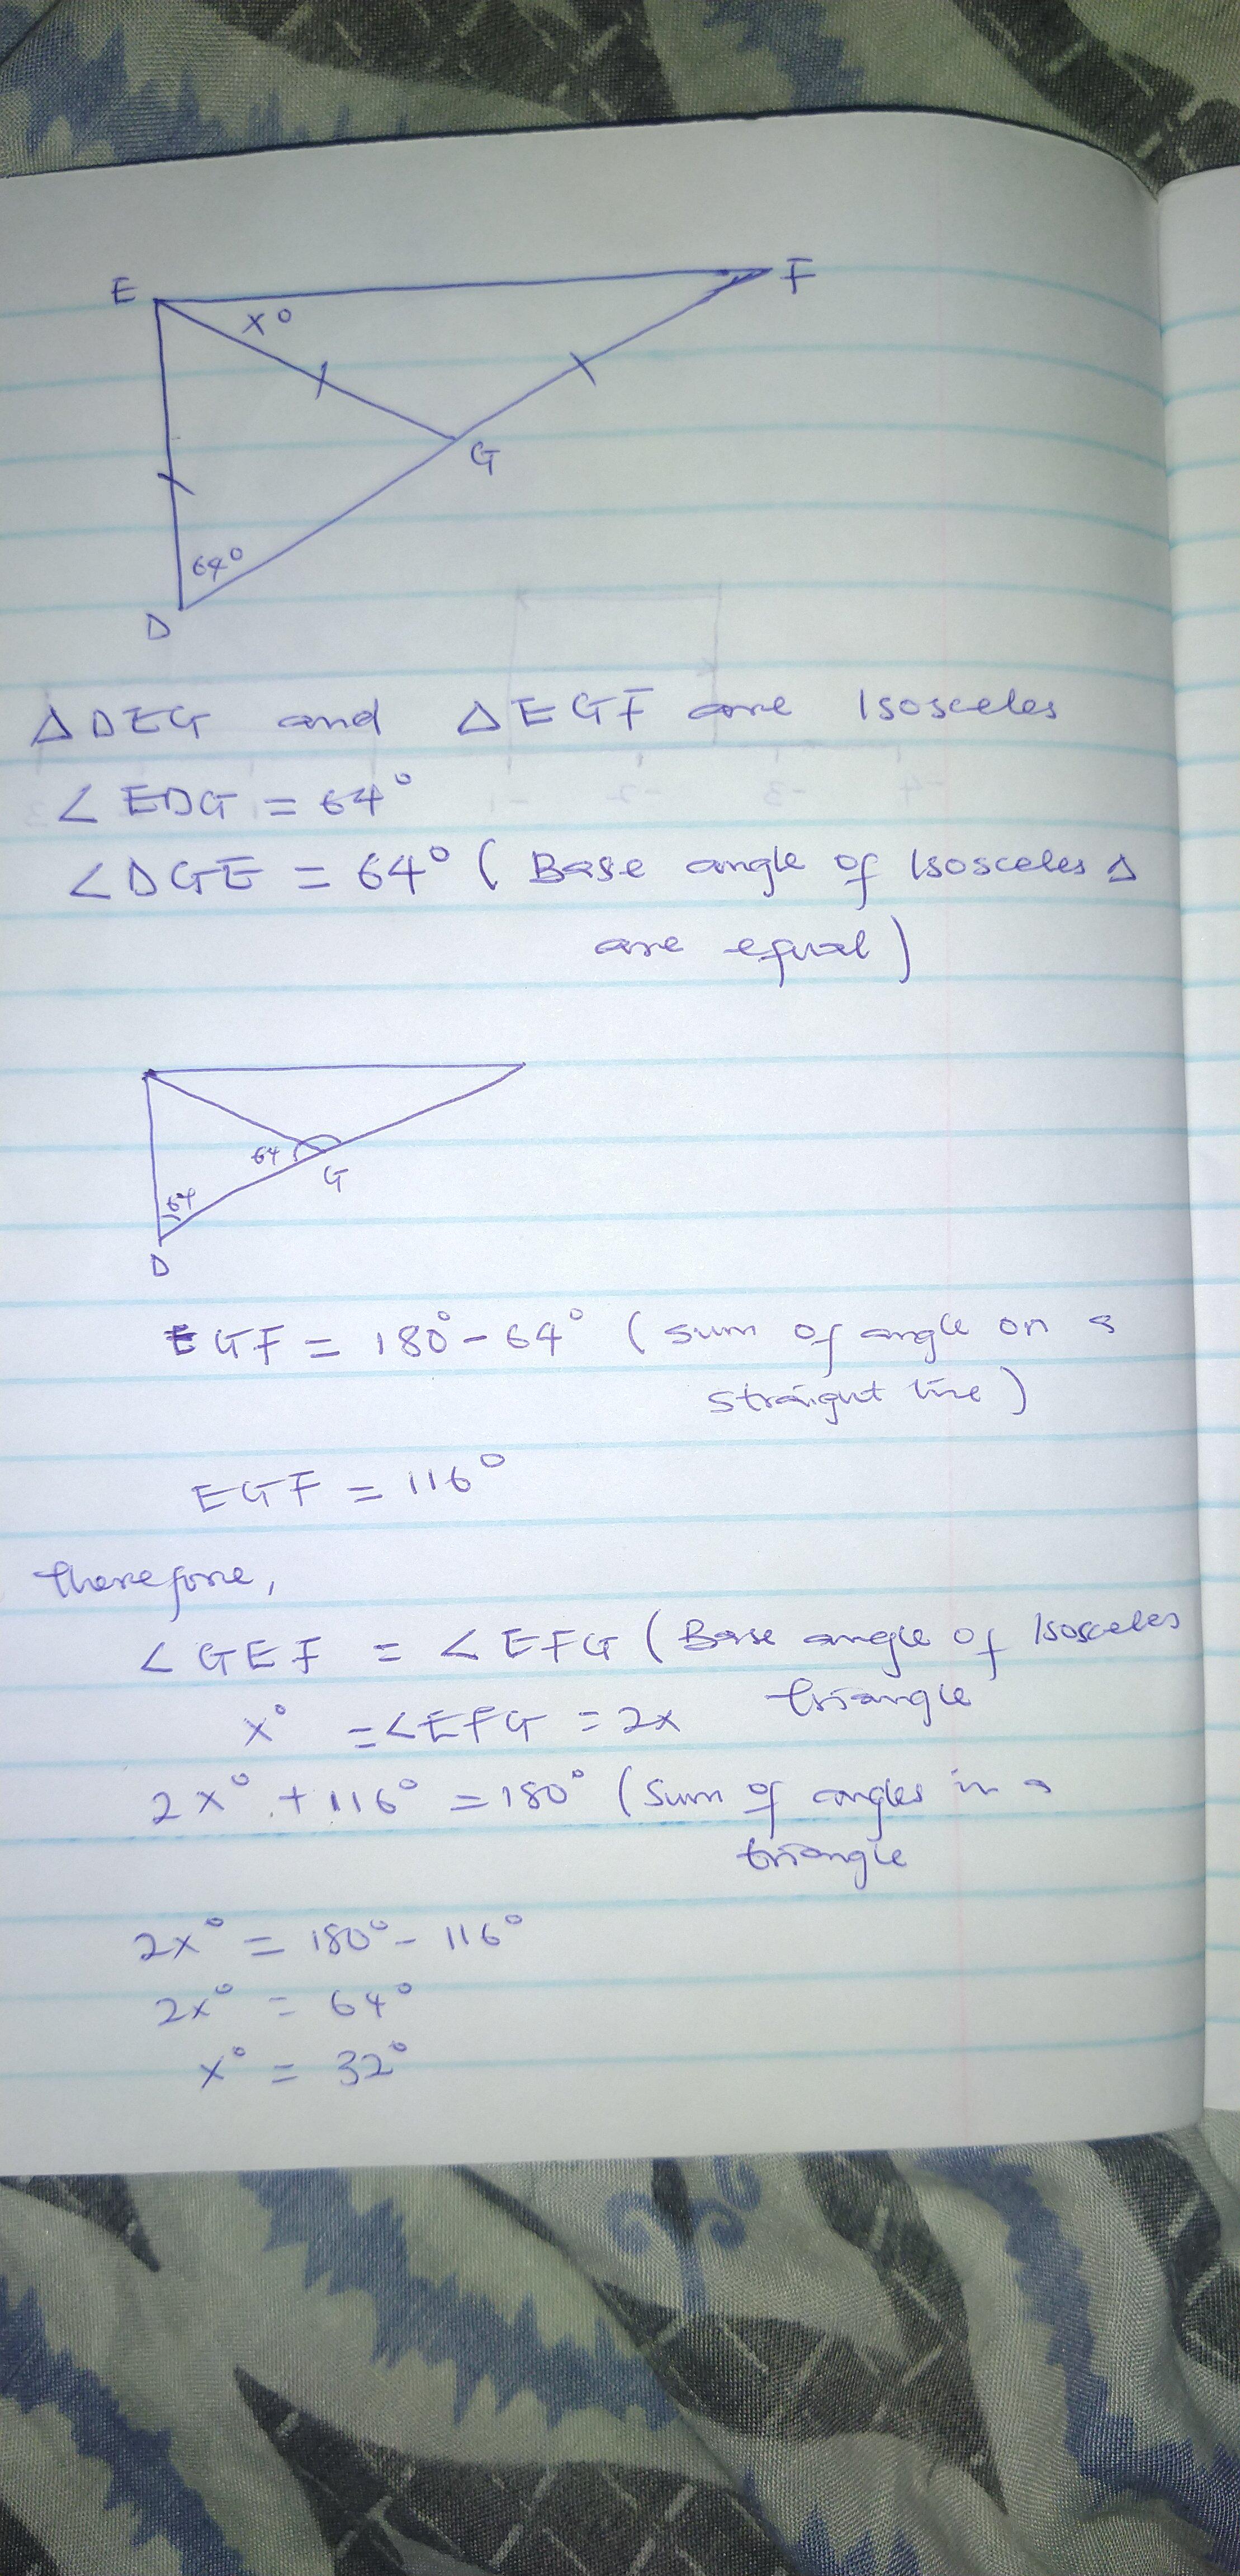 E
F
x°
G
64°
D
△DEG and △EGF are Isosceles
∠EDG = 64°
∠DGE = 64° (Base angle of Isosceles △
are equal)
64
G
64
D
EGF = 180° - 64° (sum of angle on a
straight line)
EGF = 116°
therefore,
∠GEF = ∠EFG (Base angle of Isosceles
triangle
x° = ∠EFG = 2x
2x° + 116° = 180° (Sum of angles in a
triangle
2x° = 180° - 116°
2x° = 64°
x° = 32°